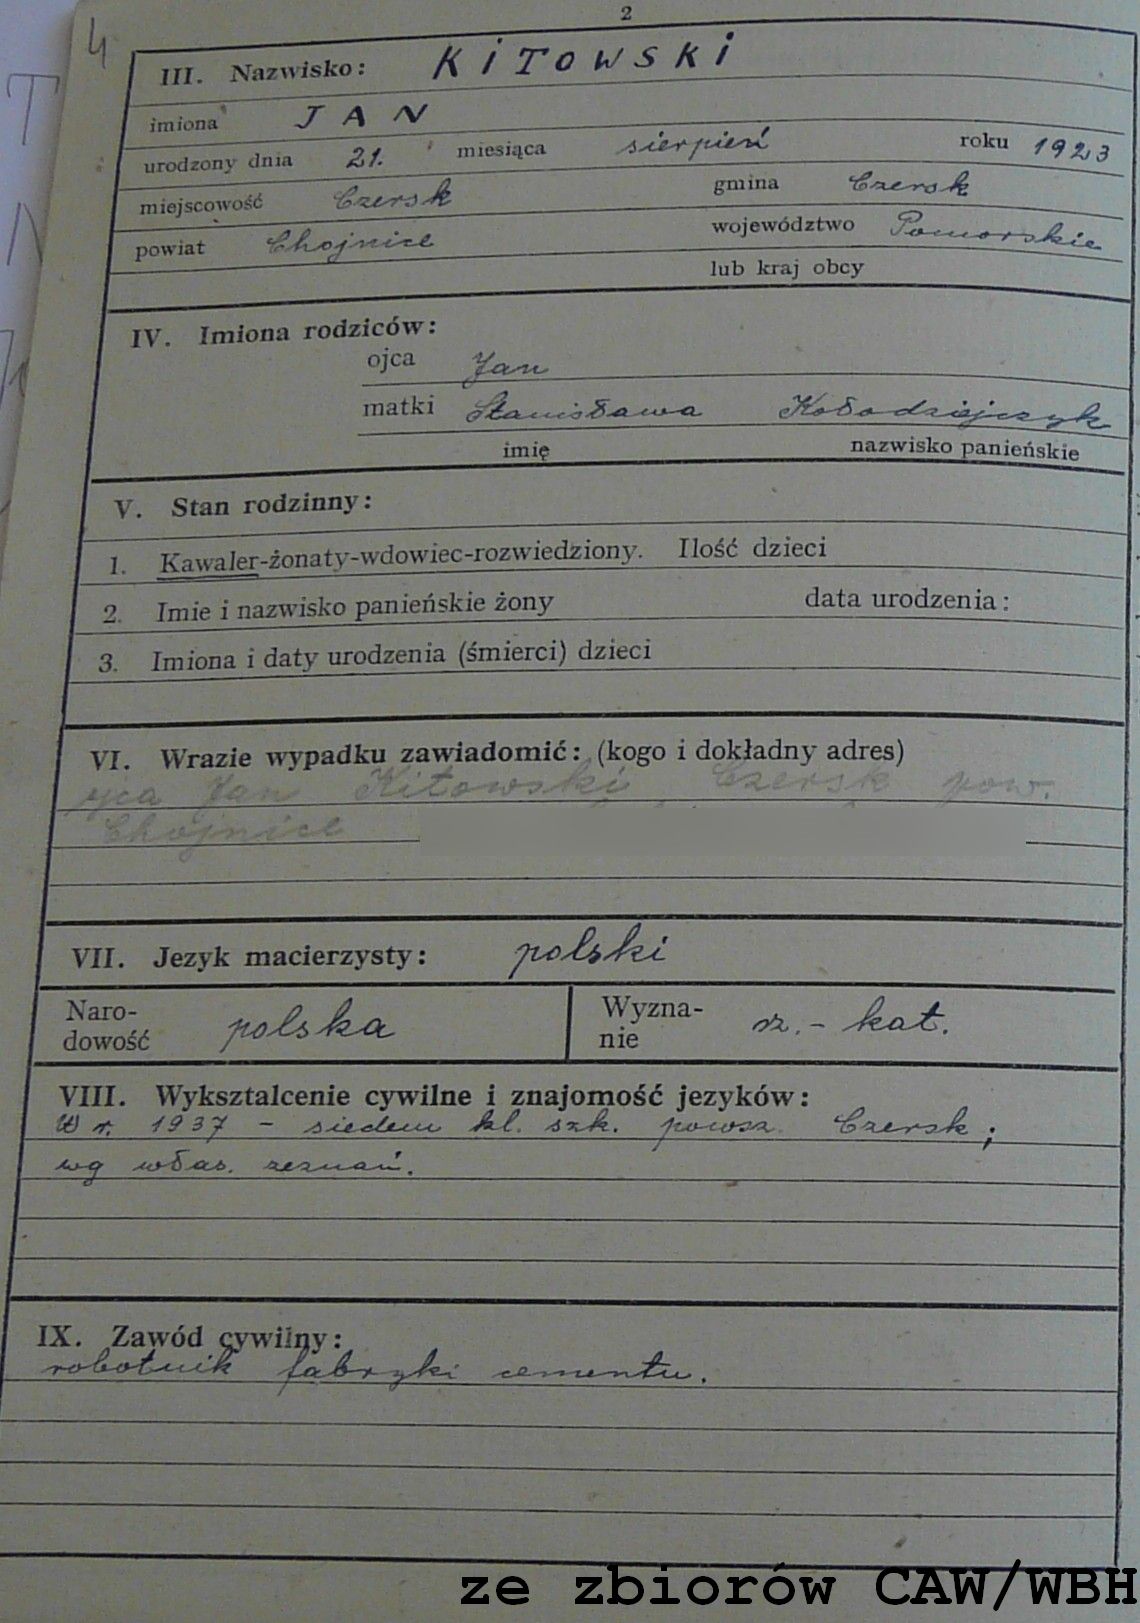 2
4
III. Nazwisko: KiTOWSKi
imiona JAN
urodzony dnia 21. miesiąca sierpień roku 1923
miejscowość Czersk gmina Czersk
powiat Chojnice województwo Pomorskie
lub kraj obcy
IV. Imiona rodziców:
ojca Jan
matki Stanisława Kołodziejczyk
imię nazwisko panieńskie
V. Stan rodzinny:
1. Kawaler-żonaty-wdowiec-rozwiedziony. Ilość dzieci
2. Imie i nazwisko panieńskie żony data urodzenia:
3. Imiona i daty urodzenia (śmierci) dzieci
VI. Wrazie wypadku zawiadomić: (kogo i dokładny adres)
ojca Jan Kitowski, Czersk pow.
Chojnice
VII. Jezyk macierzysty: polski
Naro-
dowość polska
Wyzna-
nie rz.-kat.
VIII. Wyksztalcenie cywilne i znajomość jezyków:
W r. 1937 - siedem kl. szk. powsz. Czersk;
wg włas. zeznań.
IX. Zawód cywilny:
robotnik fabryki cementu.
ze zbiorów CAW/WBH